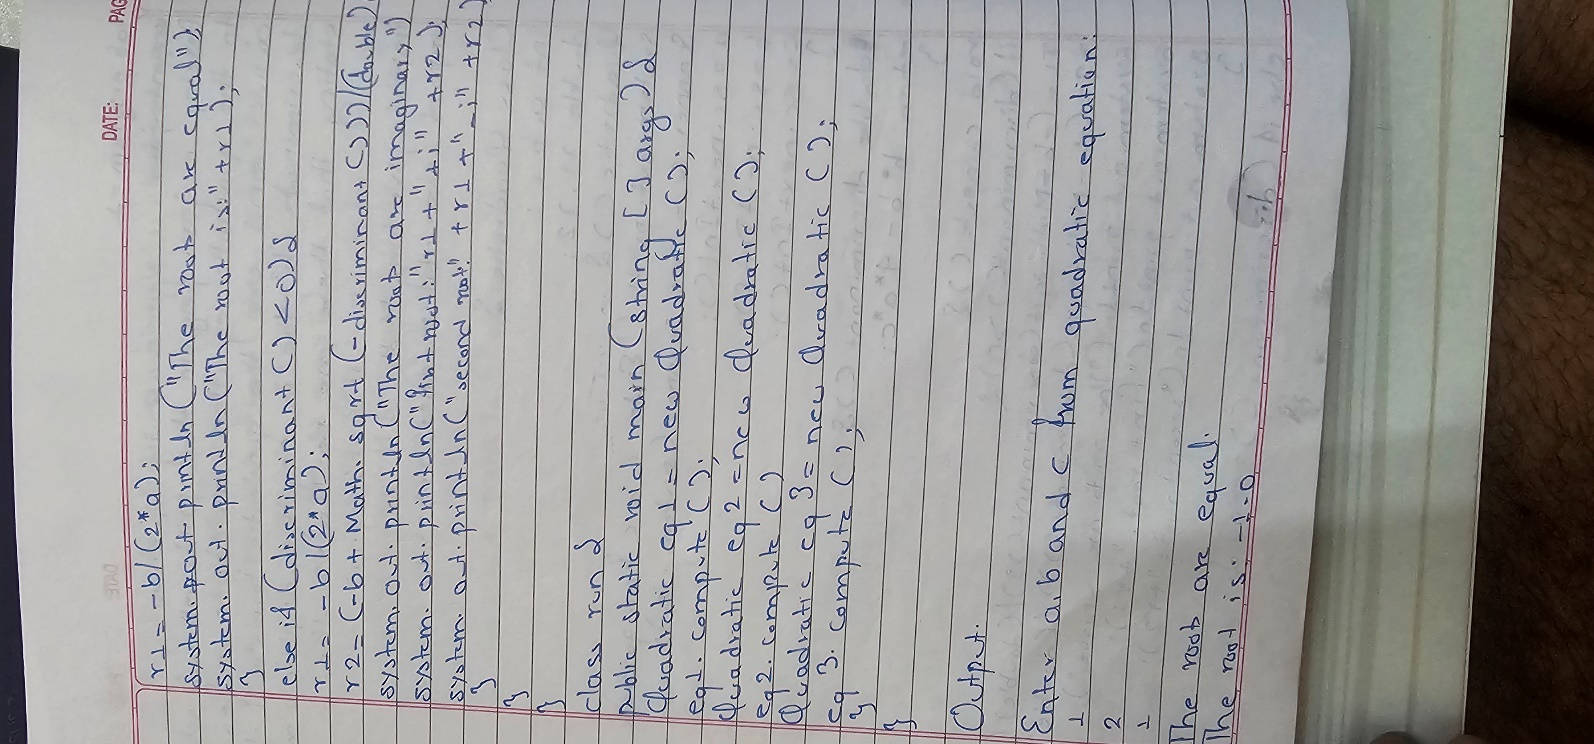 DATE:
PAG
r1 = -b/(2*a);
system.out.println("The root are equal");
system.out.println("The root is:"+r1);
}
else if (discriminant() < 0){
r1 = -b/(2*a);
r2 = (-b+Math.sqrt(-discriminant()))/(double)
system.out.println("The root are imaginary")
system.out.println("first root:"r1+"+i"+r2);
system.out.println("second root:"+r1+"-i"+r2)
}
}
}
class run {
public static void main (string [] args) {
Quadratic eq1 = new Quadratic ();
eq1.compute();
Quadratic eq2 = new Quadratic ();
eq2.compute()
Quadratic eq3 = new Quadratic ();
eq3.compute();
}
}
Output.
Enter a,b and c from quadratic equation:
1
2
1
The root are equal.
The root is: -1.0